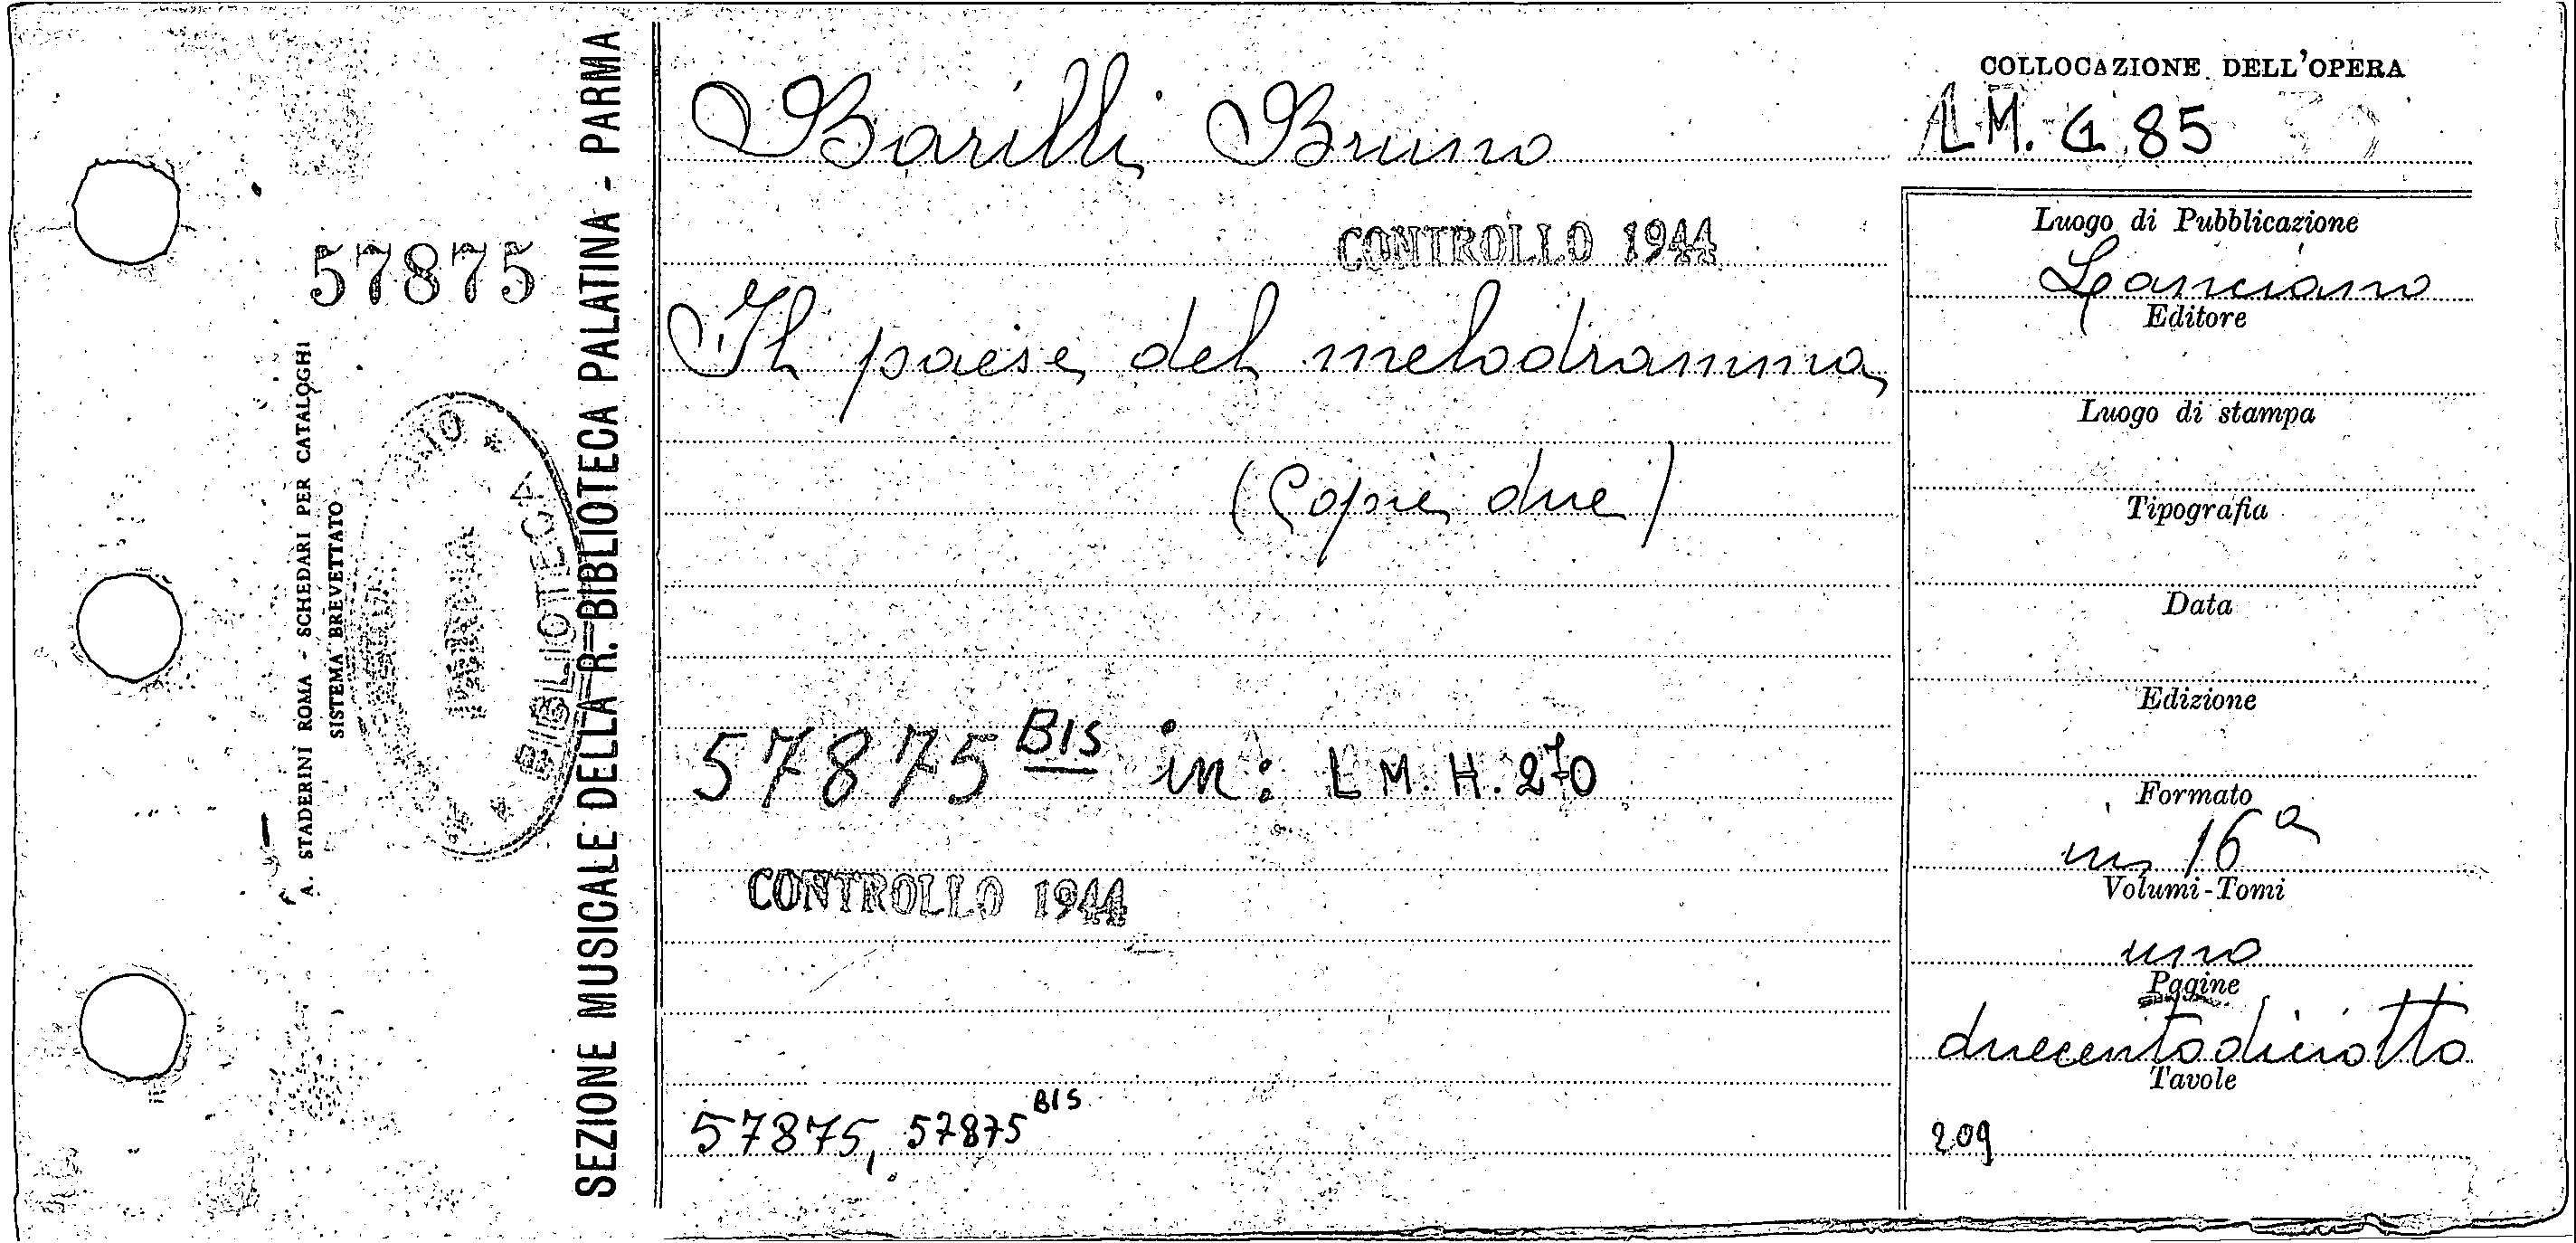 COLLOCAZIONE DELL'OPERA
Barilli Bruno
LM. G 85
CONTROLLO 1944
Il paese del melodramma
(Copie due)
57875 BIS in: LM. H. 270
CONTROLLO 1944
57875, 57875 BIS
Luogo di Pubblicazione
Lanciano
Editore
Luogo di stampa
Tipografia
Data
Edizione
Formato
in 16a
Volumi-Tomi
uno
Pagine
duecentodiciotto
Tavole
209
57875
A. STADERINI ROMA - SCHEDARI PER CATALOGHI
SISTEMA BREVETTATO
BIBLIOTECA
PARMA
SEZIONE MUSICALE DELLA R. BIBLIOTECA PALATINA - PARMA